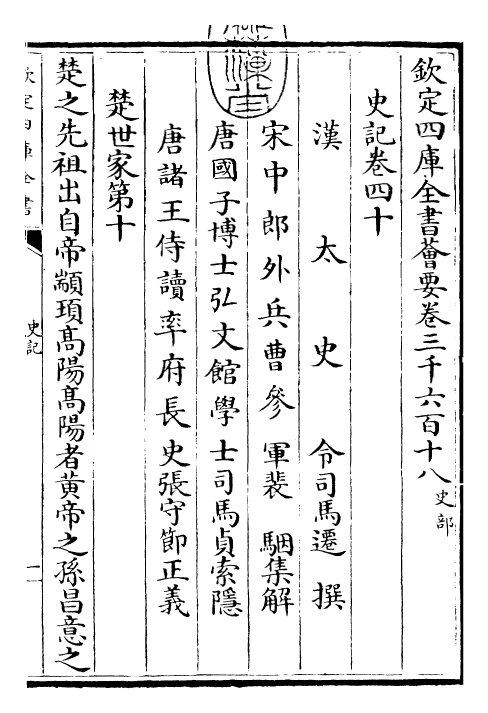 欽定四庫全書薈要卷三千六百十八 史部
史記卷四十
漢太史令司馬遷撰
宋中郎外兵曹參軍裴駰集解
唐國子博士弘文館學士司馬貞索隱
唐諸王侍讀率府長史張守節正義
楚世家第十
楚之先祖出自帝顓頊高陽高陽者黃帝之孫昌意之
欽定四庫全書
史記
一